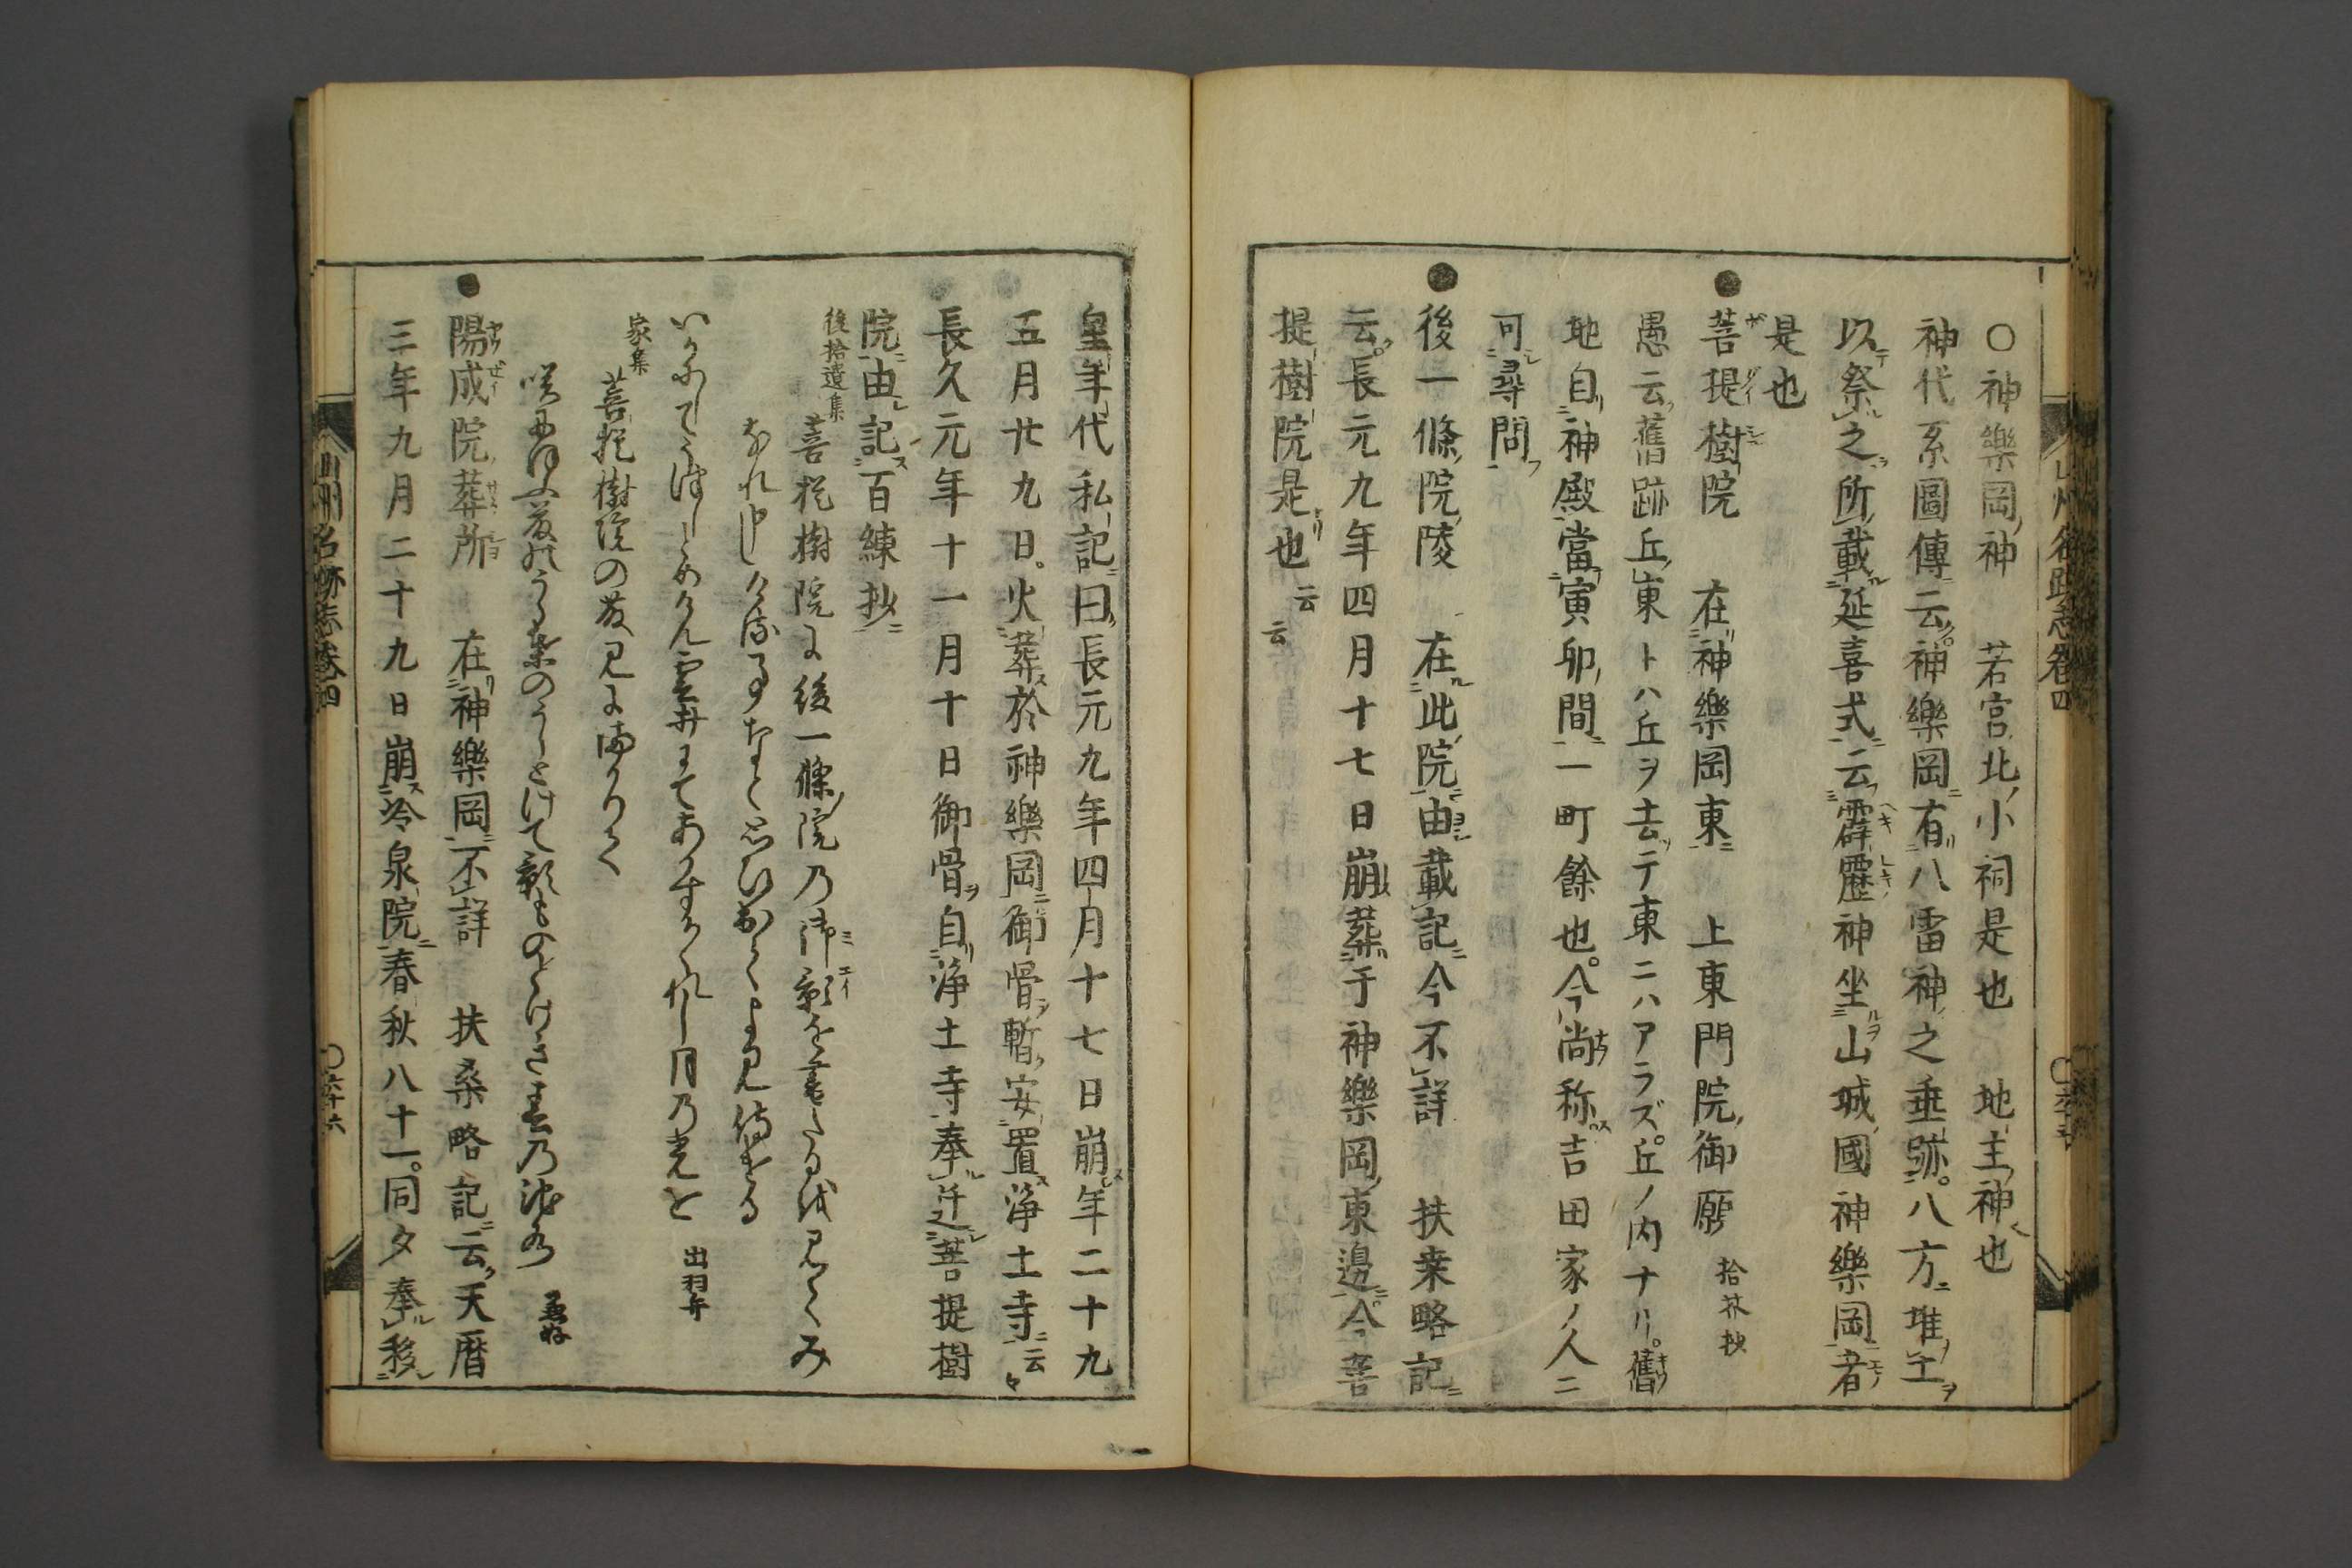 〇神樂岡神　若宮北小祠是也　地主神也
神代系圖傳云神樂岡有八雷神之垂跡八方堆土
以祭之所載延喜式云霹靂神坐山城國神樂岡者
是也
●菩提樹院　在神樂岡東　上東門院御願　拾芥抄
愚云舊跡丘東トハ丘ヲ去テ東ニハアラズ丘ノ内ナリ舊
地自神殿當寅卯間一町餘也今尚称吉田家ノ人ニ
可尋問
●後一條院陵　在此院由載記今不詳　扶桒略記
云長元九年四月十七日崩葬于神樂岡東邊今菩
提樹院是也云云
山州名跡志巻四
皇年代私記曰長元九年四月十七日崩年二十九
五月廿九日火葬於神樂岡御骨暫安置淨土寺云々
長久元年十一月十日御骨自淨土寺奉迁菩提樹
院由記百練抄
後拾遺集　菩提樹院に後一條院乃御影を書たるを見てみ
なれ申しける事なと思ひ出てよみ侍ける
いかにしてうつしとめけん雲井にてあかすかくれし月乃光を　出羽弁
家集　菩提樹院の花見にまかりて
陽成院葬所　在神樂岡不詳　扶桑略記云天暦
三年九月二十九日崩冷泉院春秋八十一同夕奉移
山州名跡志巻四
〇六十六